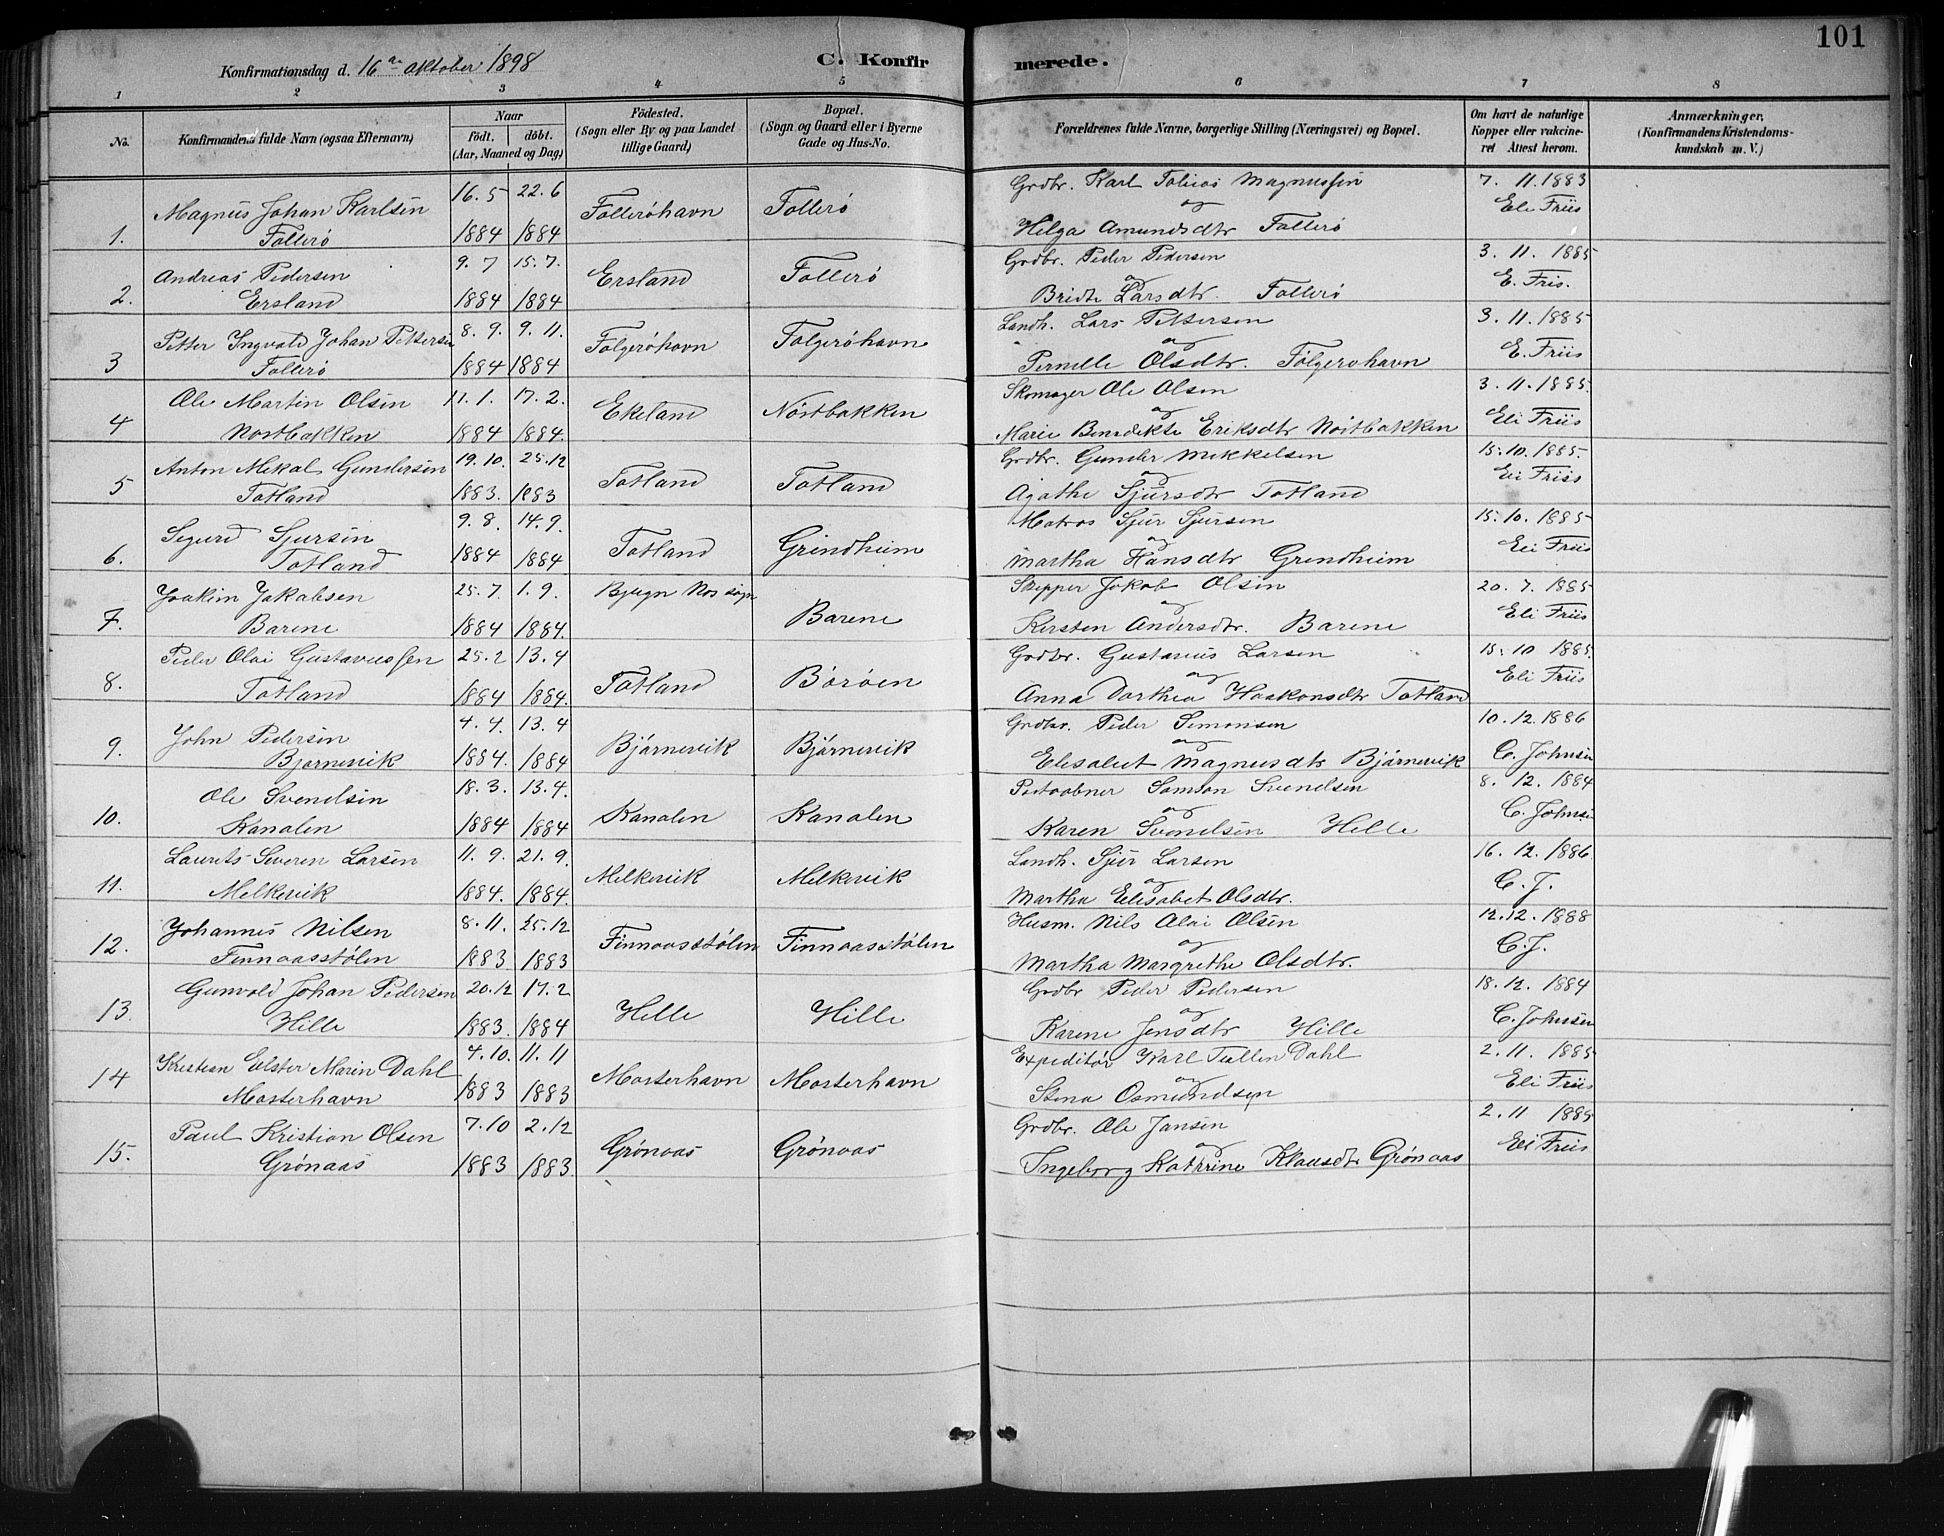 101
Konfirmationsdag d. 16de oktober 1898
C. Konfirmerede.
1 2 3 4 5 6 7 8
No.
Konfirmandens fulde Navn (ogsaa Efternavn)
Naar
födt. döbt.
(Aar, Maaned og Dag)
Födested.
(Sogn eller By og paa Landet
tillige Gaard.)
Bopæl.
(Sogn og Gaard eller i Byerne
Gade og Hus-No.
Forældrenes fulde Navne, borgerlige Stilling (Næringsvei) og Bopæl.
Om havt de naturlige
Kopper eller vakcine-
ret Attest herom.
Anmærkninger,
(Konfirmandens Kristendoms-
kundskab m. V.)
Magnus Johan Karlsen 16.5 22.6 Follerøhavn Follerø Grdbr. Karl Tobias Magnussen 7. 11.1883
og Eli Friis
1. Follerø 1884 1884 Helga Amundsdtr Follerø
Andreas Pedersen 9. 7 15.7. Ersland Follerø Grdbr. Peder Pedersen 3. 11. 1885
og E. Fris.
2. Ersland 1884 1884 Bridte Larsdtr. Follerø
Petter Ingvald Johan Pettersen 8. 9. 9. 11. Folgerøhavn Folgerøhavn Landh. Lars Pettersen 3. 11. 1885
og E. Friis
3 Follerø 1884 1884 Pernille Olsdtr. Følgerohavn
Ole Martin Olsen 11. 1. 17. 2. Ekeland Nöstbakken Skomager Ole Olsen 3. 11. 1885.
og Eli Friis
4 Nostbakken 1884 1884. Marie Benedikte Eriksdtr Nöstbakken
Anton Mekal Gundersen 19. 10. 25.12 Totland Totland Grdbr. Gunder Mikkelsen 15.10. 1885.
og Eli Friis
5 Totland 1883. 1883 Agathe Sjursdtr Totland
Sigurd Sjursen 9. 8. 14. 9. Totland Grindheim Matros Sjur Sjursen 15. 10. 1885
og Eli Friis
6. Totland 1884 1884 Martha Hansdtr Grendheim
Joakim Jakobsen 25. 7 1. 9. Bjugn Nos sogn Barene Skipper Jokob Olsen 20. 7. 1885
og Eli Friis
7. Barene 1884 1884. Kersten Andersdtr. Barene
Peder Olai Gustavussen 25. 2 13. 4 Totland Börøen Grdbr. Gustavus Larsen 15. 10 1885.
og Eli Friis
8. Totland 1884 1884. Anna Dorthea Haakonsdtr Totland
John Pedersen 4. 4. 13. 4 Bjårnevik Bjårnevik Grdbr. Peder Simonsen 10. 12. 1886
og C. Johnsen
9. Bjårnevik 1884. 1884 Elisabet Magnusdtr Bjårnevik
Ole Svendsen 18. 3. 13. 4. Kanalen Kanalen Postaabner Samson Svendsen 8. 12. 1884
og C. Johnse
10. Kanalen 1884 1884 Karen Svendsen Hille
Laurits Severen Larsen 11. 9. 21. 9. Melkevik Melkevik Landh. Sjur Larsen 16. 12. 1886
og C. J.
11. Melkevik 1884. 1884. Martha Elisabet Olsdtr.
Johannes Nilsen 8. 11. 25. 12 Finnaasstølen Finnaasstølen Husm. Nils Olai Olsen 12. 12. 1888
og C. J.
12. Finnaasstølen 1883 1883 Martha Margrethe Olsdtr.
Gunvald Johan Pedersen 20. 12 17. 2 Hille Hille Grdbr Peder Pedersen 18. 12. 1884
og C. Johnsen
13. Hille 1883. 1884 Karene Jensdtr Hille
Kristian Elster Marin Dahl 4. 10. 11. 11 Mosterhavn Mosterhavn Expeditör Karl Tullin Dahl 2. 11. 1885
og Eli Friis
14 Mosterhavn 1883 1883 Stena Osmundsen
Paul Kristian Olsen 7. 10 2. 12 Grønaas Grønaas Grdbr. Ole Jansen 2. 11 1885
og Eli Friis
15. Grønaas 1883 1883. Ingeborg Kathrine Klausdtr Grønaas